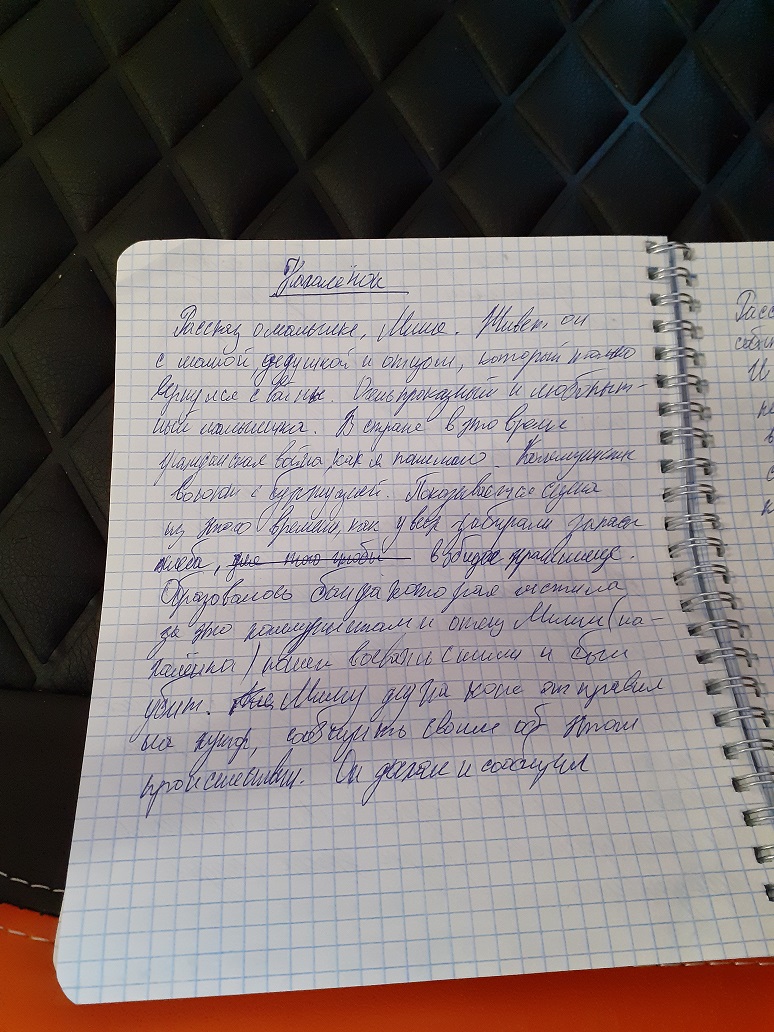 Нахалёнок
Рассказ о мальчике, Мише. Живет он
с мамой, дедушкой и отцом, который только
вернулся с войны. Очень проказный и любопыт-
ный мальчишка. В стране в это время
гражданская война, как я понимаю Коммунисты
воюют с буржуазией. Показывается сцена
из этого времени, как у всех забирали запасы
хлеба, для того чтобы в общее хранилище.
Образовалась банда которая мстила
за это коммунистам и отец Миши (на-
халёнка) пошел воевать с ними и был
убит. Мишу дед на коне отправил
на хутор, сообщить своим об этом
происшествии. Он доехал и сообщил
Расс
И